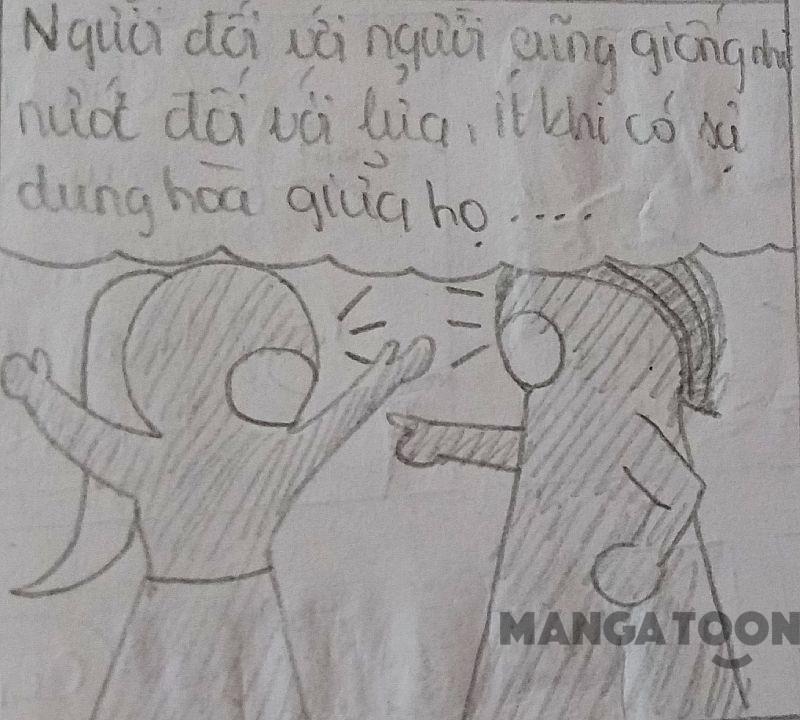 Người đối với người cũng giống như
nướt đối với lửa, ít khi có sự
dung hòa giữa họ....
MANGATOON